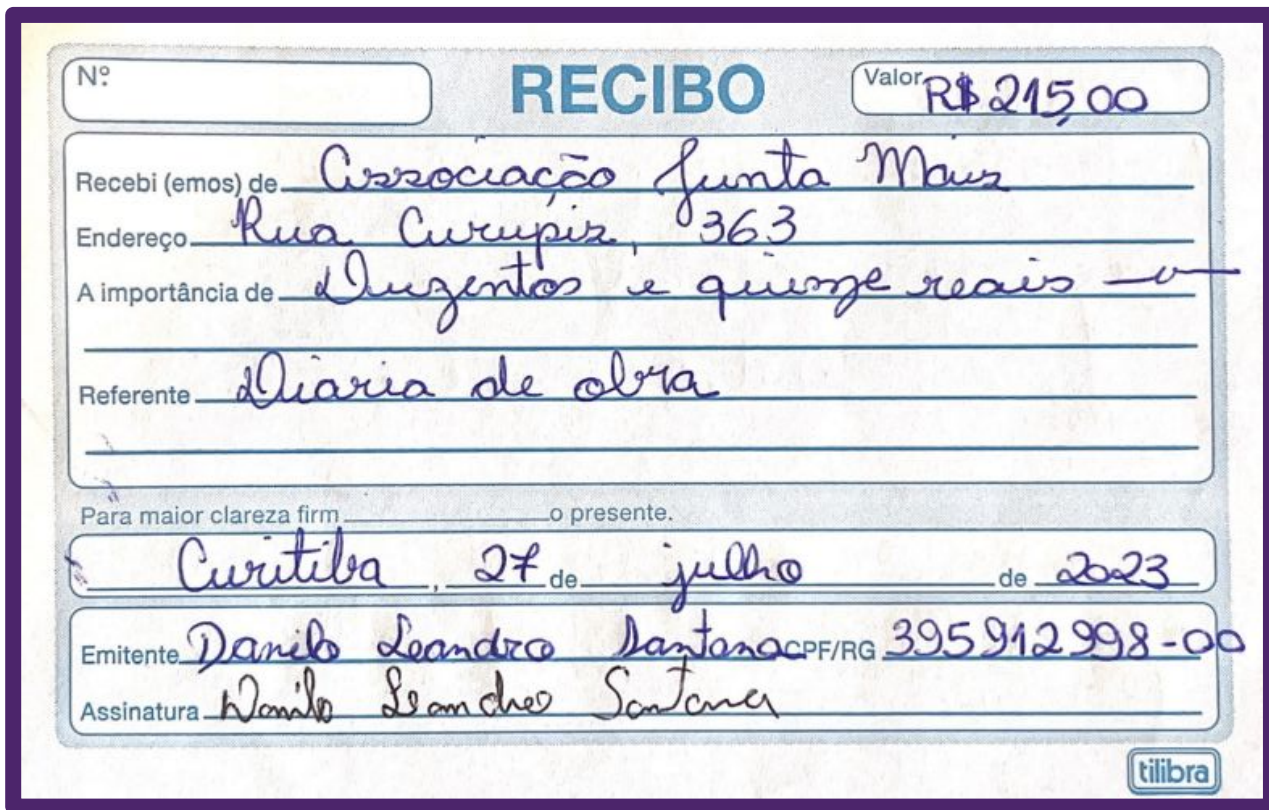 Nº
RECIBO
Valor R$ 215,00
Recebi (emos) de Associação Junta Mais
Endereço Rua Curupis, 363
A importância de Duzentos e quinze reais
Referente Diaria de obra
Para maior clareza firm o presente.
Curitiba, 27 de julho de 2023
Emitente Danilo Leandro Santana CPF/RG 395912998-00
Assinatura Danilo Leandro Santana
tilibra